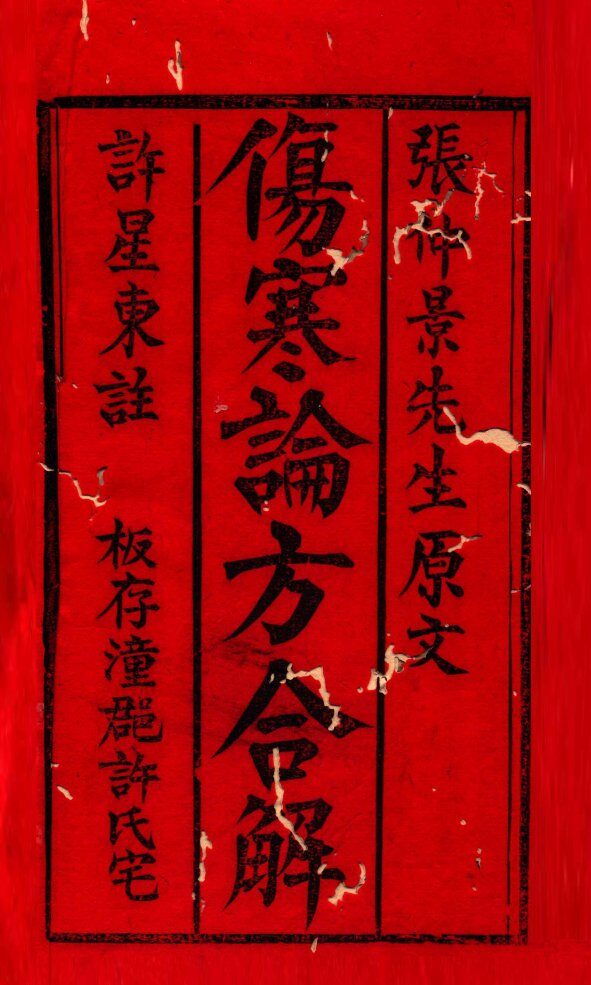 張仲景先生原文
傷寒論方合解
許星東註　板存潼郡許氏宅